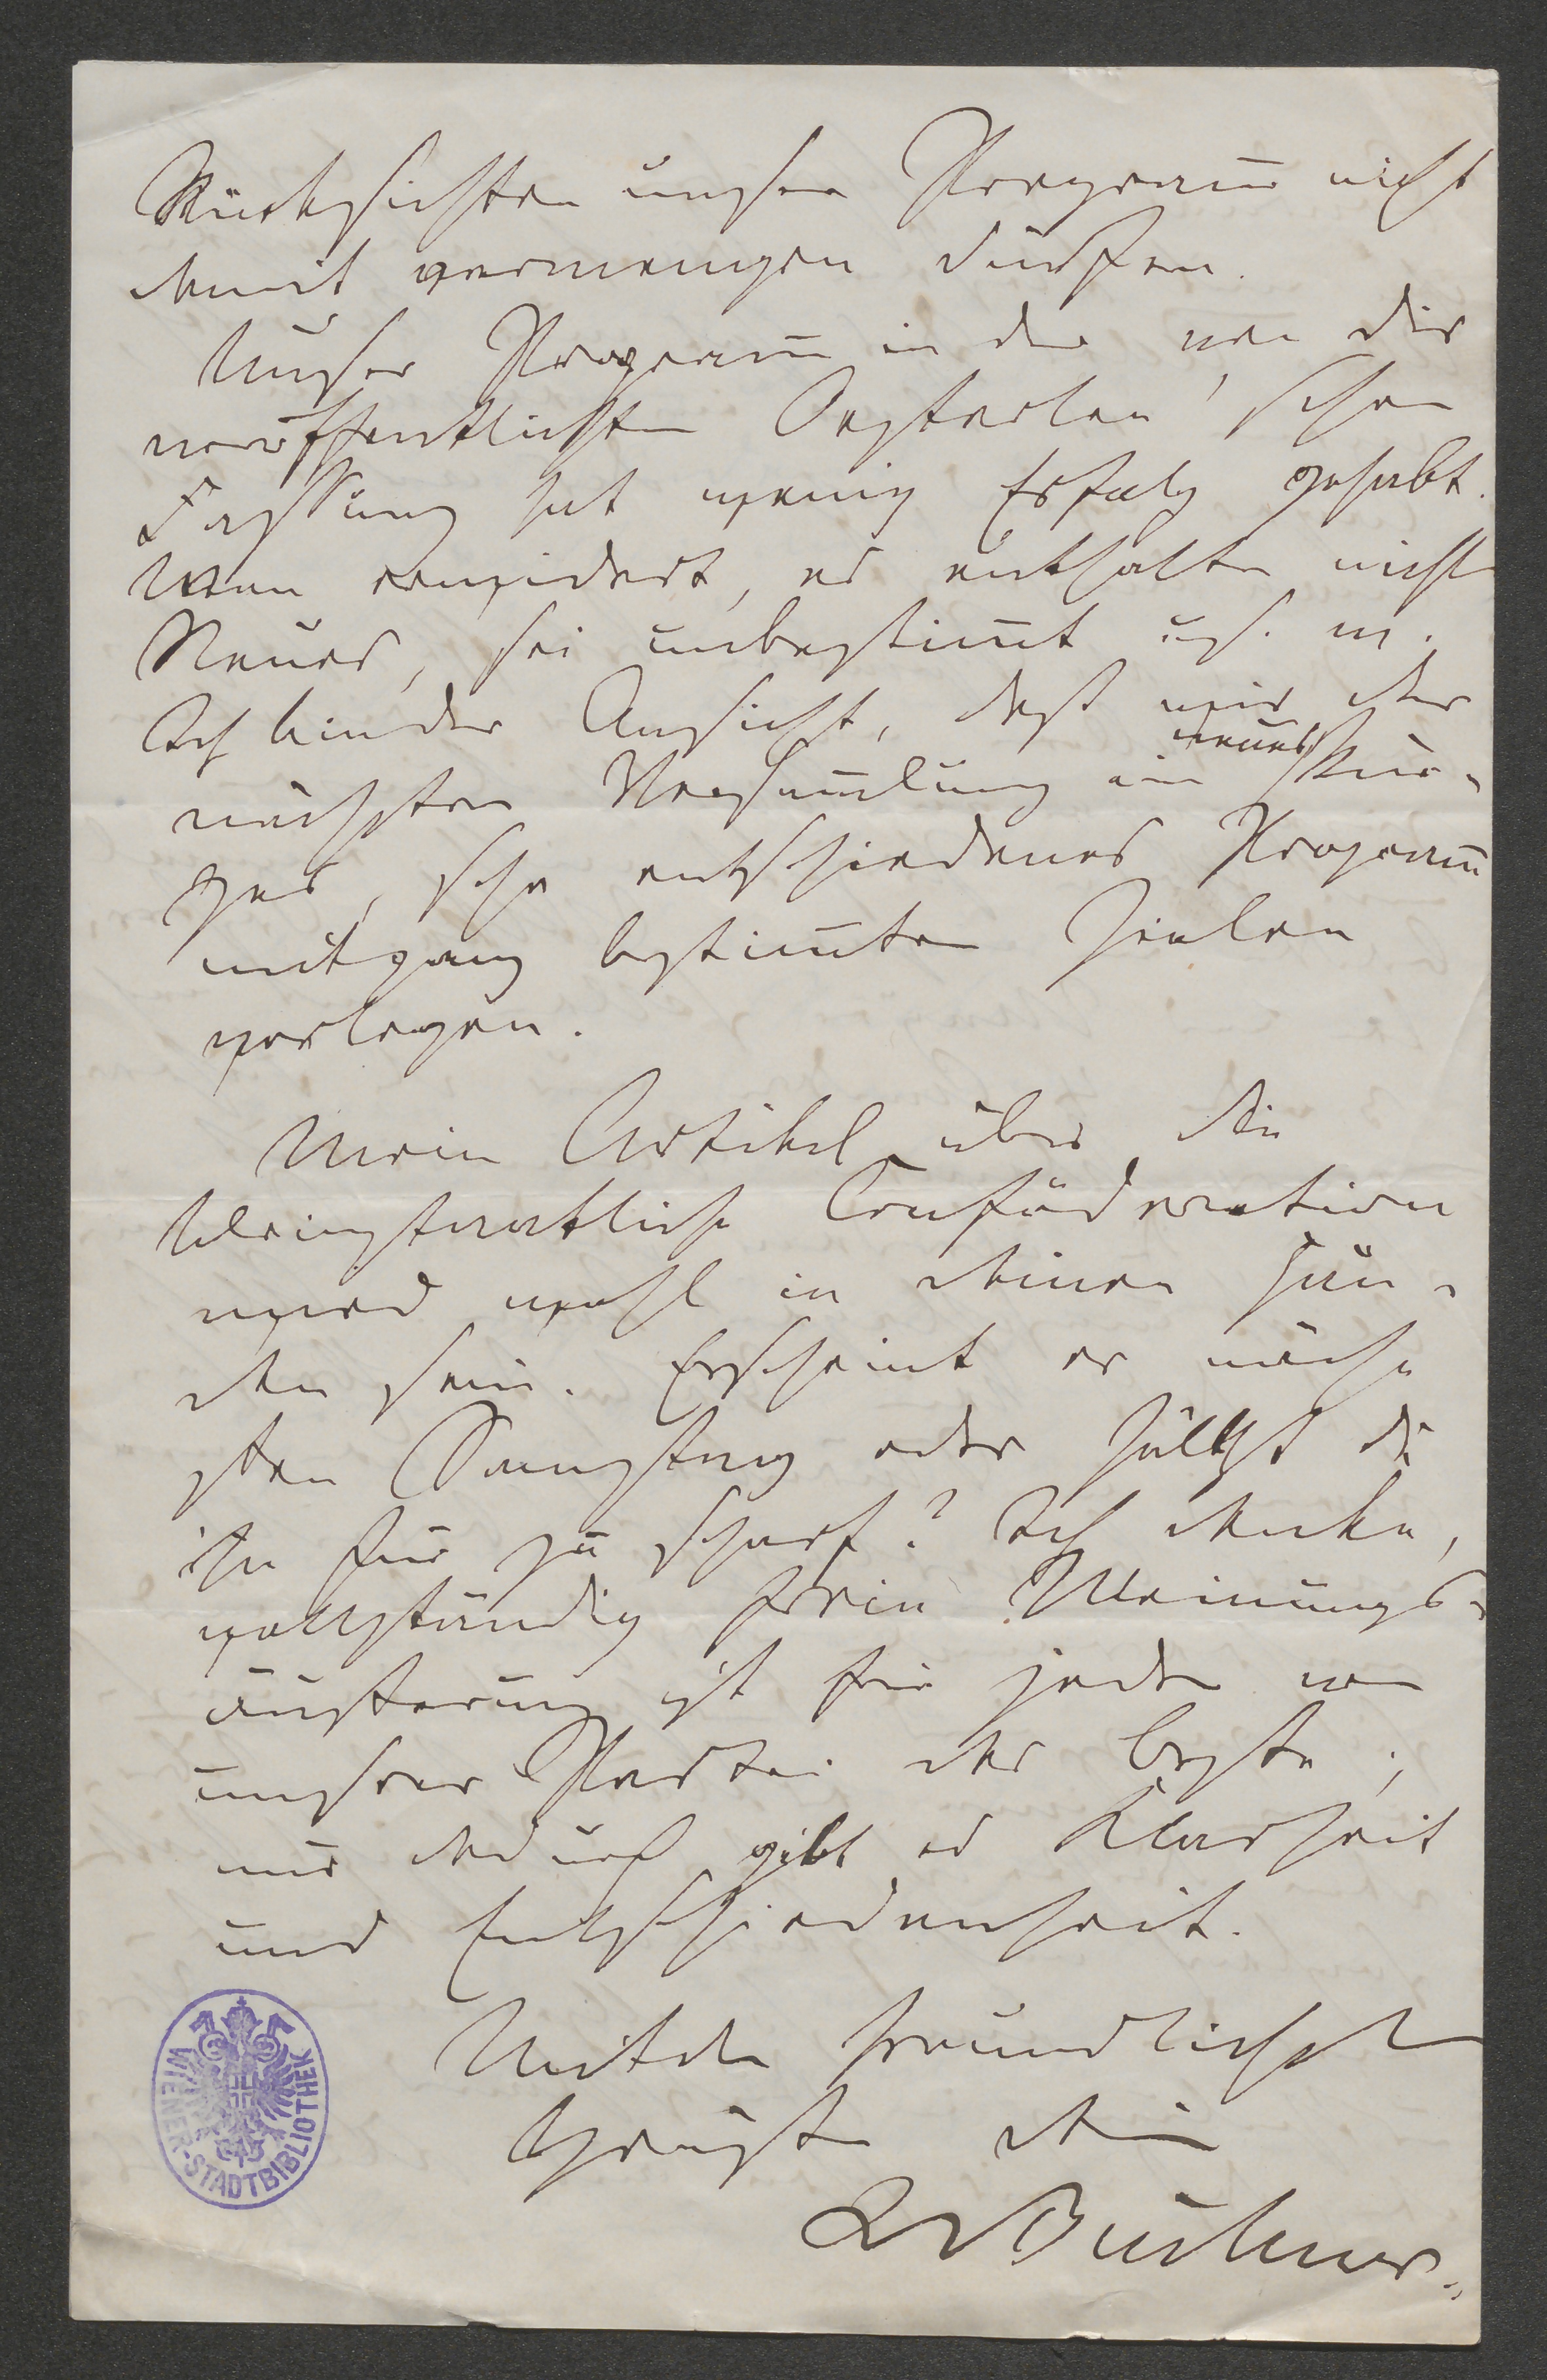 Rücksichten unser Program̄ nicht
damit vermengen dürfen.
Unser Program̄ in der von dir
veröffentlichten Oesterlen'schen
Fassung hat wenig Erfolg gehabt.
Man erwidert, es enthalte nichts
Neues, sei unbestim̄t us. w.
Ich bin der Ansicht, daß wir der
nächsten Versam̄lung ein neues kur-
zes, sehr entschiedenes Program̄
mit ganz bestim̄ten Zielen
vorlegen.
Mein Artikel über die
kleinstaatliche Conföderation
wird wohl in deinen Hän-
den sein. Erscheint er näch-
sten Samstag oder hältst du
ihn für zu scharf? Ich denke,
vollständig freie Meinungs-
äußerung ist für jeden von
unsrer Partei das beste;
nur dadurch gibt es Klarheit
und Entschiedenheit.
Mit den freundlichsten
Grüßen dein
Büchner.
WIENER-STADTBIBLIOTHEK